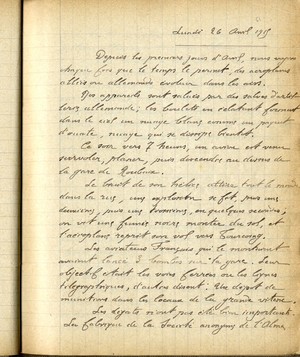 Lundi 26 Avril 1915
Depuis les premiers jours d'Avril, nous voyons
chaque fois que le temps le permet, des aéroplanes
alliés ou allemands évoluer dans les airs.
Les appareils sont salués par des salves d'artil-
lerie allemande ; les boulets en éclatant forment
dans le ciel un nuage blanc comme un paquet
d'ouate, nuage qui se dissipe bientôt.
Ce soir vers 7 heures, un avion est venu
survoler, planer, puis descendre au dessus de
la gare de Roubaix.
Le bruit de son hélice attire tout le monde
dans la rue, une explosion se fit, puis une
deuxième, puis une troisième, en quelques secondes ;
on vit une fumée noire monter du sol, et
l'aéroplane reprit son vol vers Tourcoing.
Les aviateurs Français qui le montaient
avaient lancé 3 bombes sur la gare. Leur
objectif était les voies ferrées ou les lignes
télégraphiques, d'autres disent : un dépôt de
munitions dans les locaux de la grande vitesse.
Les dégâts n'ont pas été bien importants.
La fabrique de la Société anonyme de l'